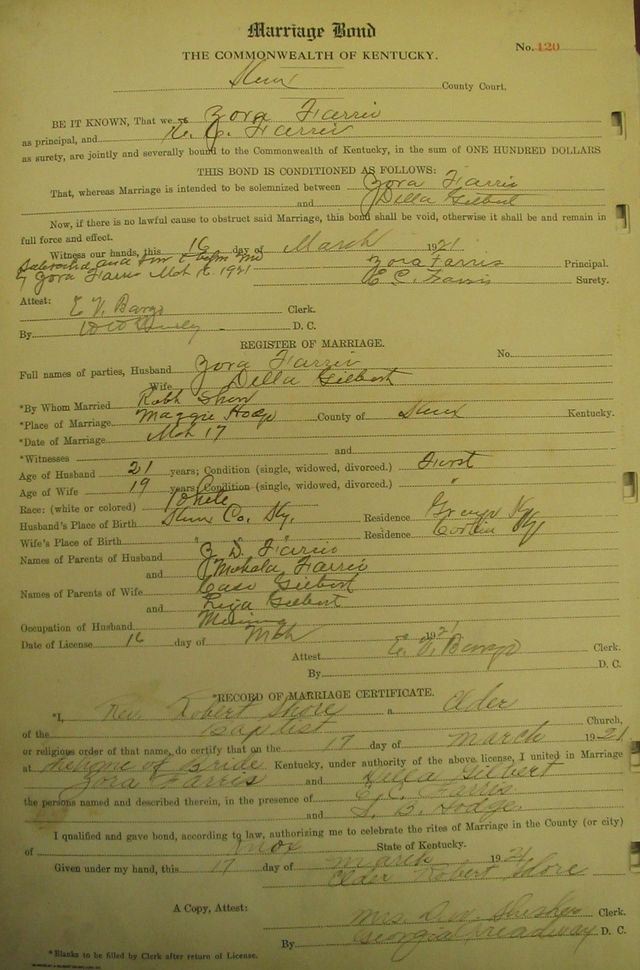 Marriage Bond
No. 120
THE COMMONWEALTH OF KENTUCKY.
Knox County Court.
BE IT KNOWN, That we Zora Farris
as principal, and E. C. Farris
as surety, are jointly and severally bound to the Commonwealth of Kentucky, in the sum of ONE HUNDRED DOLLARS
THIS BOND IS CONDITIONED AS FOLLOWS:
That, whereas Marriage is intended to be solemnized between Zora Farris
and Della Gilbert
Now, if there is no lawful cause to obstruct said Marriage, this bond shall be void, otherwise it shall be and remain in
full force and effect.
Witness our hands, this 16 day of March 1921
Subscribed and sworn to before me Zora Farris Principal.
by Zora Farris Mch 16 1921 E C. Farris Surety.
Attest: E. V. Clerk.
By D. C.
REGISTER OF MARRIAGE.
Full names of parties, Husband Zora Farris No.
Wife Della Gilbert
*By Whom Married Robt
*Place of Marriage Maggie County of Knox Kentucky.
*Date of Marriage Mch 17
*Witnesses and
Age of Husband 21 years; Condition (single, widowed, divorced.) First
Age of Wife 19 years Condition (single, widowed, divorced.) "
Race: (white or colored) White
Husband's Place of Birth Knox Co. Ky. Residence Ky
Wife's Place of Birth " " Residence Corbin Ky
Names of Parents of Husband Farris
and Farris
Names of Parents of Wife Gilbert
and Gilbert
Occupation of Husband Mining
Date of License 16 day of Mch 1921
Attest E. V. Clerk.
By D. C.
*RECORD OF MARRIAGE CERTIFICATE.
*I, Rev. Robert Shore a Elder
of the Baptist Church,
or religious order of that name, do certify that on the 17 day of March 1921
at the home of Bride Kentucky, under authority of the above license, I united in Marriage
Zora Farris and Della Gilbert
the persons named and described therein, in the presence of E. C. Farris
and Hodge
I qualified and gave bond, according to law, authorizing me to celebrate the rites of Marriage in the County (or city)
of Knox State of Kentucky.
Given under my hand, this 17 day of March 1921
Elder Robert Shore
A Copy, Attest: Mrs. Clerk.
By Georgia Treadway D. C.
*Blanks to be filled by Clerk after return of License.